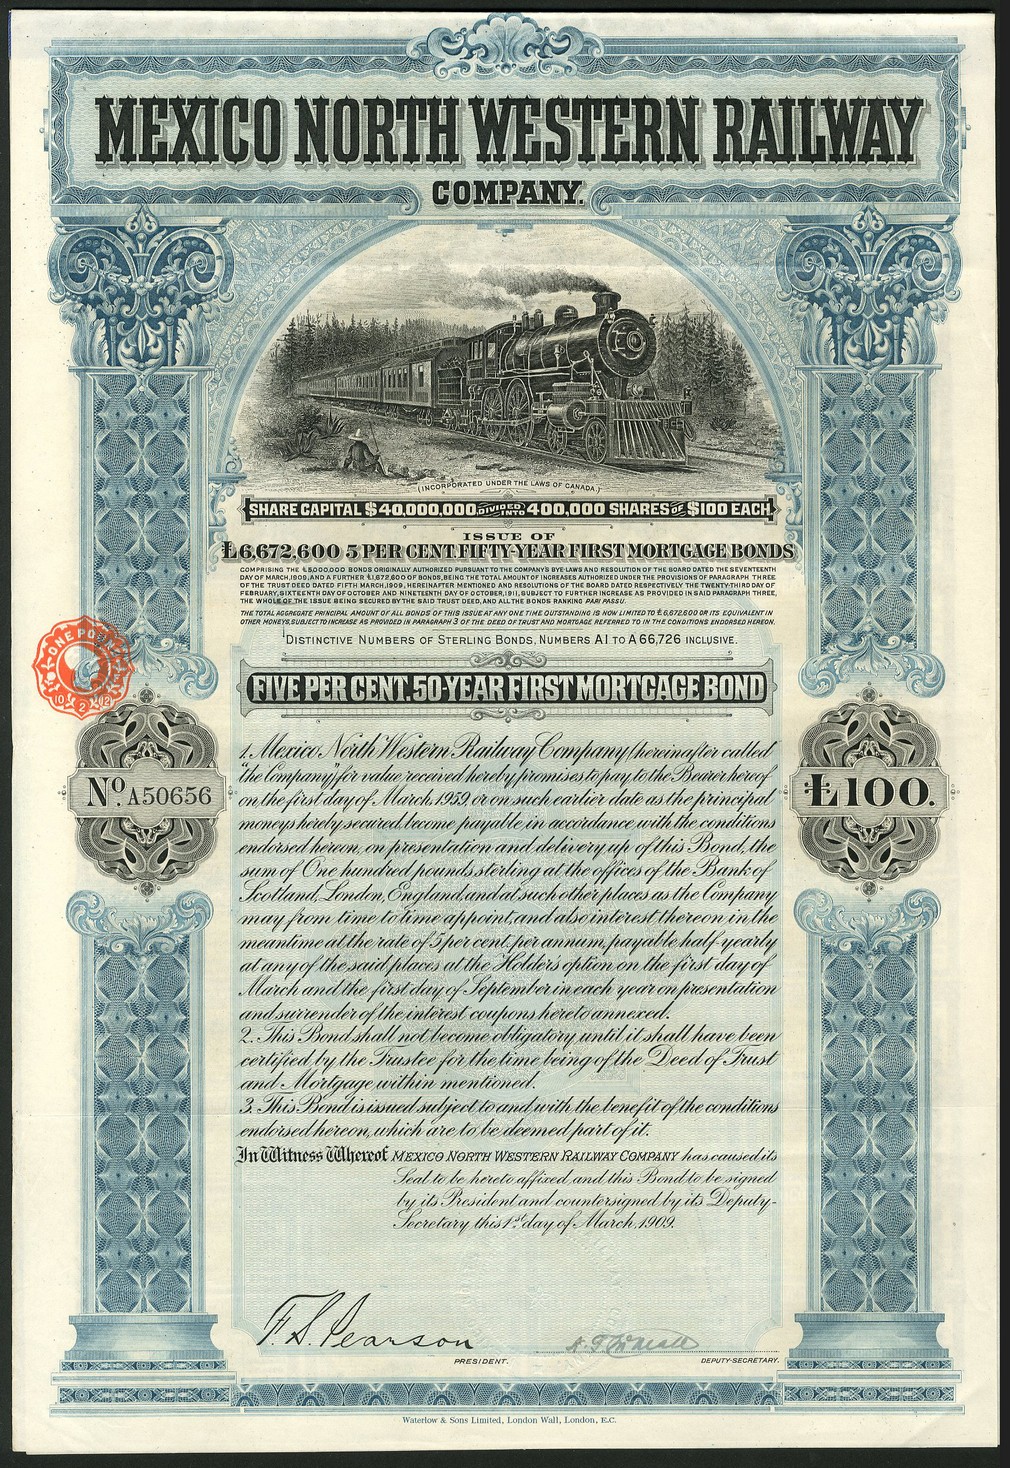 MEXICO NORTH WESTERN RAILWAY
COMPANY.
(INCORPORATED UNDER THE LAWS OF CANADA.)
SHARE CAPITAL $40,000,000 DIVIDED INTO 400,000 SHARES OF $100 EACH.
ISSUE OF
£6,672,600 5 PER CENT. FIFTY-YEAR FIRST MORTGAGE BONDS
COMPRISING THE £5,000,000 BONDS ORIGINALLY AUTHORIZED PURSUANT TO THE COMPANY'S BYE-LAWS AND RESOLUTION OF THE BOARD DATED THE SEVENTEENTH
DAY OF MARCH, 1909, AND A FURTHER £1,672,600 OF BONDS, BEING THE TOTAL AMOUNT OF INCREASES AUTHORIZED UNDER THE PROVISIONS OF PARAGRAPH THREE
OF THE TRUST DEED DATED FIFTH MARCH, 1909, HEREINAFTER MENTIONED AND RESOLUTIONS OF THE BOARD DATED RESPECTIVELY THE TWENTY-THIRD DAY OF
FEBRUARY, SIXTEENTH DAY OF OCTOBER AND NINETEENTH DAY OF OCTOBER, 1911, SUBJECT TO FURTHER INCREASE AS PROVIDED IN SAID PARAGRAPH THREE,
THE WHOLE OF THE ISSUE BEING SECURED BY THE SAID TRUST DEED, AND ALL THE BONDS RANKING PARI PASSU.
THE TOTAL AGGREGATE PRINCIPAL AMOUNT OF ALL BONDS OF THIS ISSUE AT ANY ONE TIME OUTSTANDING IS NOW LIMITED TO £6,672,600 OR ITS EQUIVALENT IN
OTHER MONEYS, SUBJECT TO INCREASE AS PROVIDED IN PARAGRAPH 3 OF THE DEED OF TRUST AND MORTGAGE REFERRED TO IN THE CONDITIONS ENDORSED HEREON.
DISTINCTIVE NUMBERS OF STERLING BONDS, NUMBERS A1 TO A66,726 INCLUSIVE.
ONE POUND
10 2 12
FIVE PER CENT. 50-YEAR FIRST MORTGAGE BOND
No. A50656
£100.
1. Mexico North Western Railway Company (hereinafter called
"the Company") for value received hereby promises to pay to the Bearer hereof
on the first day of March, 1959, or on such earlier date as the principal
moneys hereby secured, become payable in accordance with the conditions
endorsed hereon, on presentation and delivery up of this Bond, the
sum of One hundred pounds sterling at the offices of the Bank of
Scotland, London, England, and at such other places as the Company
may from time to time appoint, and also interest thereon in the
meantime at the rate of 5 per cent. per annum, payable half-yearly
at any of the said places at the Holder's option on the first day of
March and the first day of September in each year on presentation
and surrender of the interest coupons hereto annexed.
2. This Bond shall not become obligatory until it shall have been
certified by the Trustee for the time being of the Deed of Trust
and Mortgage within mentioned.
3. This Bond is issued subject to and with the benefit of the conditions
endorsed hereon, which are to be deemed part of it.
In Witness Whereof MEXICO NORTH WESTERN RAILWAY COMPANY has caused its
Seal to be hereto affixed and this Bond to be signed
by its President and countersigned by its Deputy-
Secretary this 1st day of March, 1909.
F. S. Pearson
PRESIDENT.
DEPUTY-SECRETARY.
Waterlow & Sons Limited, London Wall, London, E.C.